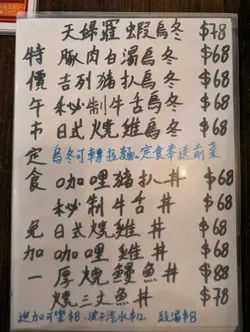 特價午市定食免加一
天婦羅蝦烏冬 $78
豚肉白湯烏冬 $68
吉列豬扒烏冬 $68
秘制牛舌烏冬 $68
日式燒雞烏冬 $68
烏冬可轉拉麵。定食奉送前菜
咖哩豬扒丼 $68
秘制牛舌丼 $68
日式燒雞丼 $68
咖哩雞丼 $68
厚燒鰻魚丼 $88
燒三文魚丼 $78
追加可樂$8·波子汽水$12 豉湯$8